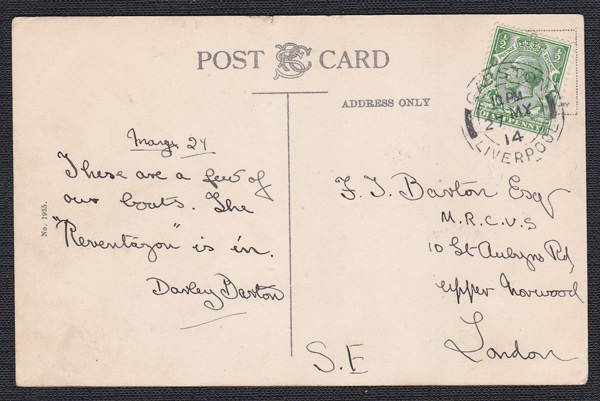 POST CARD
ADDRESS ONLY
27
These are a few of
our boats. The
"Reventazon" is in.
Darley Barton
No. 1935.
F. J. Barton Esq
M.R.C.V.S
10 St Aubyns Rd
Upper Norwood
London
S.E
10 PM
27 MY
14
LIVERPOOL